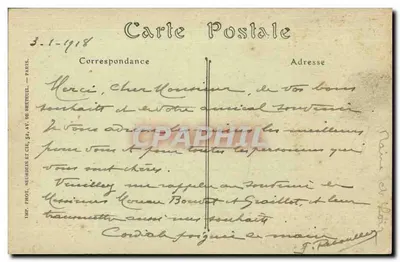 Carte Postale
3-1-1918
Correspondance
Adresse
Merci, cher Monsieur, de vos bons
souhaits et de votre amical souvenir
Je vous adresse les meilleurs
pour vous et pour toutes les personnes qui
vous sont chères.
Veuillez me rappeler au souvenir de
Messieurs Moreau Boudet et Graillot, et leur
transmettre aussi mes souhaits
Cordiale poignée de main
CARPHILA
IMP. PHOT. NEURDEIN ET CIE, 52, AV. DE BRETEUIL. — PARIS.